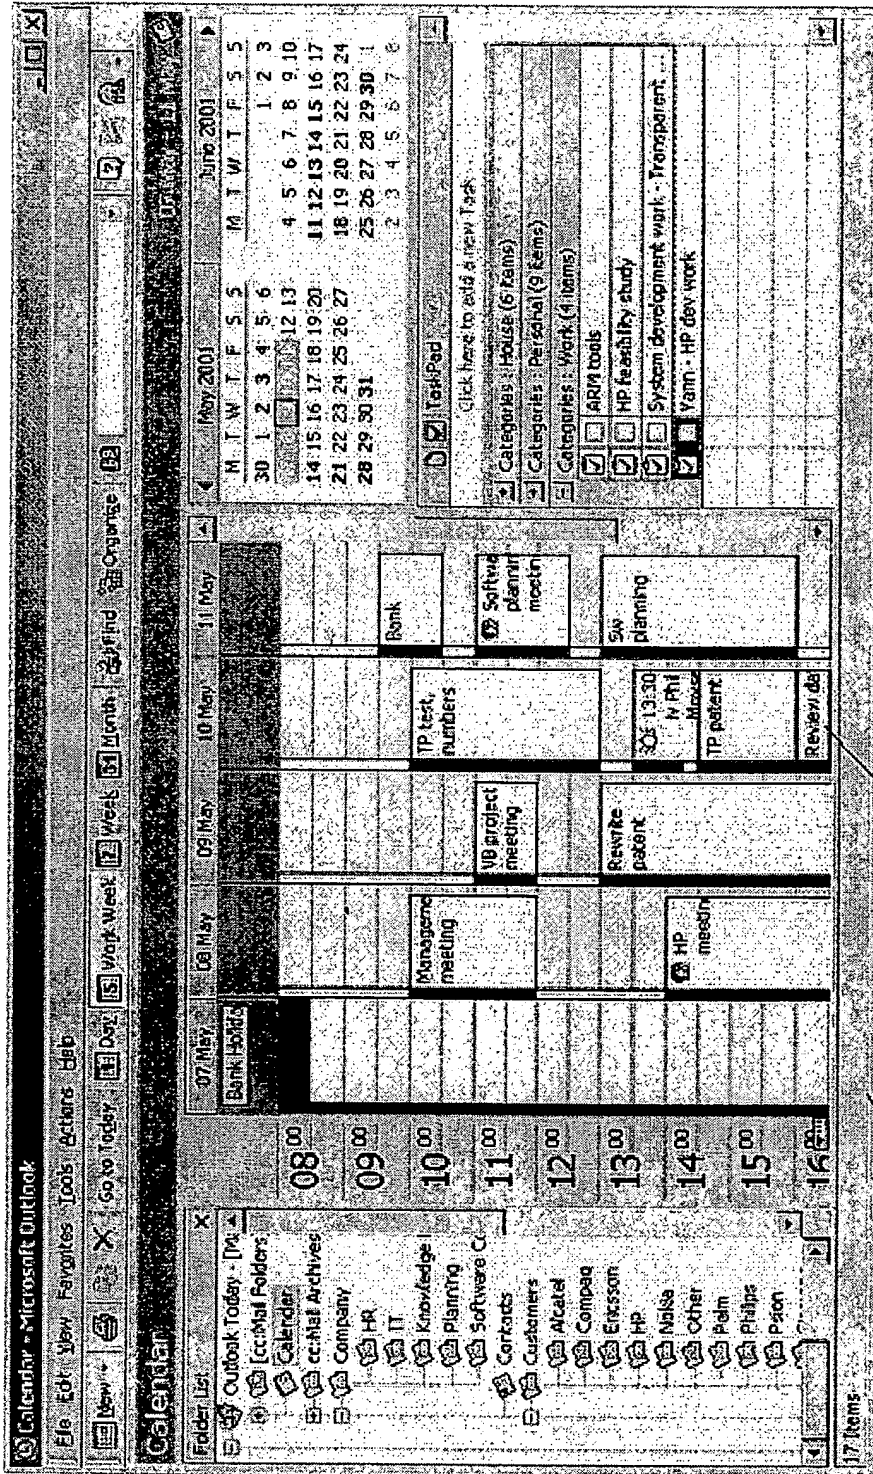 Calendar - Microsoft Outlook
File Edit View Favorites Tools Actions Help
New Go to Today 1 Day 5 Work Week 7 Week 31 Month Find Organise
Calendar
Folder List
Outlook Today - [M
[cc:Mail Folders
Calendar
cc:Mail Archives
Company
HR
IT
Knowledge
Planning
Software C
Contacts
Customers
Alcatel
Compaq
Ericsson
HP
Nokia
Other
Palm
Philips
Psion
07 May 08 May 09 May 10 May 11 May
Bank Holida
08 00
09 00
10 00
11 00
12 00
13 00
14 00
15 00
16 00
Manageme
meeting
HP
meetin
VB project
meeting
Rewrite
patent
TP test,
numbers
13:30
TP patent
Review da
Bank
Softwa
plannin
meetin
SW
planning
May 2001
M T W T F S S
30 1 2 3 4 5 6
12 13
14 15 16 17 18 19 20
21 22 23 24 25 26 27
28 29 30 31
June 2001
M T W T F S S
1 2 3
4 5 6 7 8 9 10
11 12 13 14 15 16 17
18 19 20 21 22 23 24
25 26 27 28 29 30 1
2 3 4 5 6 7 8
TaskPad
Click here to add a new Task
Categories : House (6 items)
Categories : Personal (9 items)
Categories : Work (4 items)
ARM tools
HP feasibility study
System development work - Transparent ...
Yann - HP dev work
17 Items